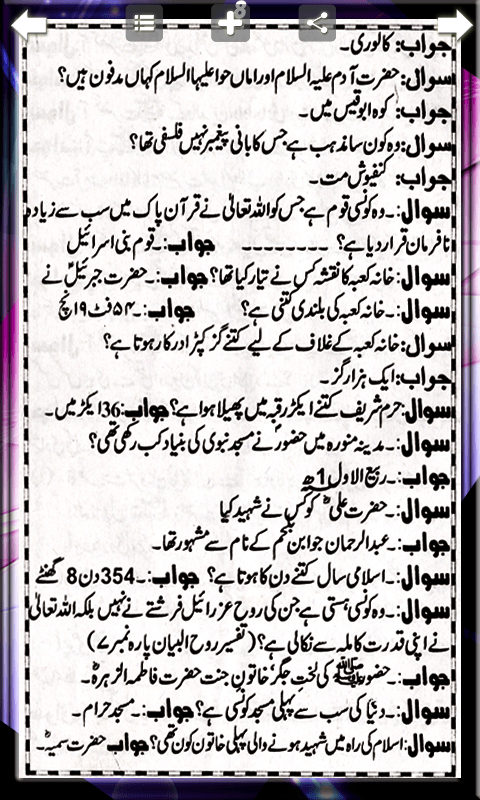 8
جواب: کالوری۔
سوال: حضرت آدم علیہ السلام اور اماں حوا علیہا السلام کہاں مدفون ہیں؟
جواب: کوہ ابوقیس میں۔
سوال: وہ کون سا مذہب ہے جس کا بانی پیغمبر نہیں فلسفی تھا؟
جواب: کنفیوش مت۔
سوال:۔ وہ کونسی قوم ہے جس کو اللہ تعالیٰ نے قرآن پاک میں سب سے زیادہ
نافرمان قرار دیا ہے؟ ۔۔۔۔۔۔۔۔۔ جواب:۔ قوم بنی اسرائیل
سوال: خانہ کعبہ کا نقشہ کس نے تیار کیا تھا؟ جواب:۔ حضرت جبرئیلؑ نے
سوال:۔ خانہ کعبہ کی بلندی کتنی ہے؟ جواب:۔ ۵۴ فٹ ۱۹ انچ
سوال: خانہ کعبہ کے غلاف کے لیے کتنے گز کپڑا درکار ہوتا ہے؟
جواب: ایک ہزار گز۔
سوال: حرم شریف کتنے ایکڑ رقبہ میں پھیلا ہوا ہے؟ جواب: 36 ایکڑ میں۔
سوال:۔ مدینہ منورہ میں حضورؐ نے مسجد نبوی کی بنیاد کب رکھی تھی؟
جواب:۔ ربیع الاول 1ھ
سوال:۔ حضرت علیؓ کو کس نے شہید کیا
جواب:۔ عبدالرحمان جو ابن لجم کے نام سے مشہور تھا۔
سوال:۔ اسلامی سال کتنے دن کا ہوتا ہے؟ جواب:۔ 354 دن 8 گھنٹے
سوال:۔ وہ کونسی ہستی ہے جن کی روح عزرائیل فرشتے نے نہیں بلکہ اللہ تعالیٰ
نے اپنی قدرت کاملہ سے نکالی ہے؟ (تفسیر روح البیان پارہ نمبر ۷)
جواب:۔ حضور ﷺ کی لخت جگر خاتون جنت حضرت فاطمہ الزہرہؓ۔
سوال:۔ دنیا کی سب سے پہلی مسجد کونسی ہے؟ جواب:۔ مسجد حرام۔
سوال: اسلام کی راہ میں شہید ہونے والی پہلی خاتون کون تھی؟ جواب حضرت سمیہؓ۔